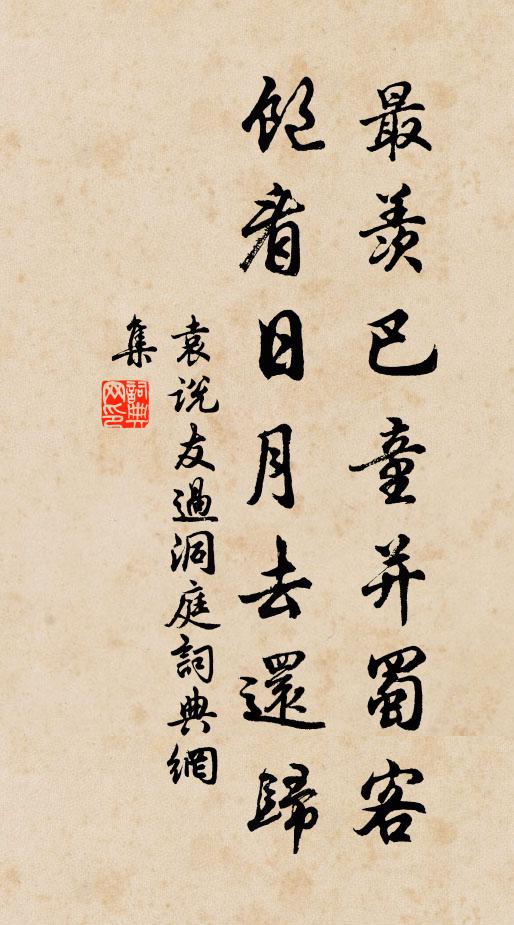 最羨巴童并蜀客
飽看日月去還歸
袁說友過洞庭詞典網
集
詞典
网印